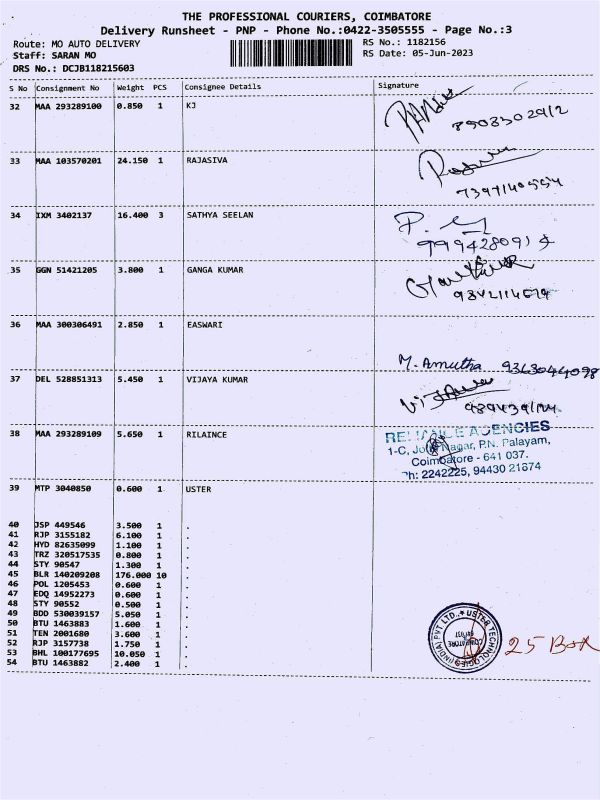 THE PROFESSIONAL COURIERS, COIMBATORE
Delivery Runsheet - PNP - Phone No.:0422-3505555 - Page No.:3
Route: MO AUTO DELIVERY
RS No.: 1182156
Staff: SARAN MO
RS Date: 05-Jun-2023
DRS No.: DCJB118215603
S No Consignment No Weight PCS Consignee Details Signature
32 MAA 293289100 0.850 1 KJ
8903302912
33 MAA 103570201 24.150 1 RAJASIVA
34 IXM 3402137 16.400 3 SATHYA SEELAN
35 GGN 51421205 3.800 1 GANGA KUMAR
36 MAA 300306491 2.850 1 EASWARI
M. Amutha 9363044098
37 DEL 528851313 5.450 1 VIJAYA KUMAR
38 MAA 293289109 5.650 1 RILAINCE
RELIANCE AGENCIES
1-C, Nagar, P.N. Palayam,
Coimbatore - 641 037.
Ph: 2242225, 94430 21874
39 MTP 3040850 0.600 1 USTER
40 JSP 449546 3.500 1 .
41 RJP 3155182 6.100 1 .
42 HYD 82635099 1.100 1 .
43 TRZ 320517535 0.800 1 .
44 STY 90547 1.300 1 .
45 BLR 140209208 176.000 10 .
46 POL 1205453 0.600 1 .
47 EDQ 14952273 0.600 1 .
48 STY 90552 0.500 1 .
49 BDD 530039157 5.050 1 .
50 BTU 1463883 1.600 1 .
51 TEN 2001680 3.600 1 .
52 RJP 3157738 1.750 1 .
53 BHL 100177695 10.050 1 .
54 BTU 1463882 2.400 1 .
USTER TECHNOLOGIES (INDIA) PVT LTD.,
25 Box